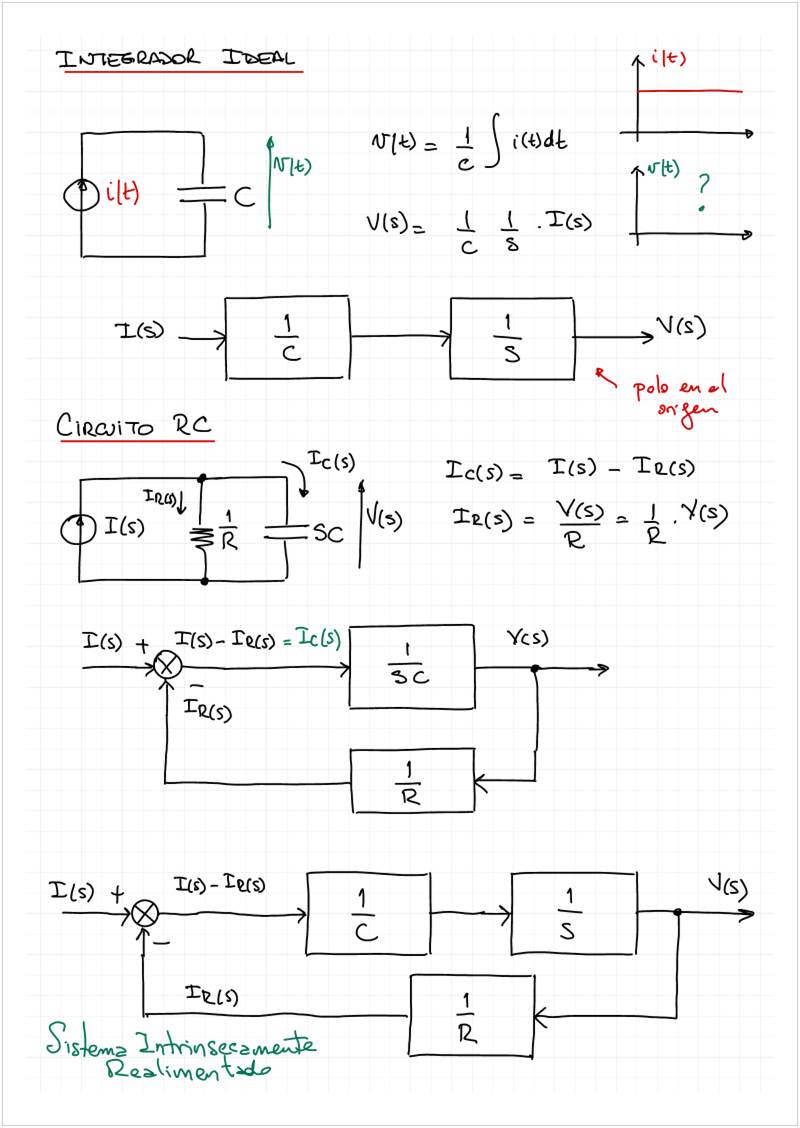 INTEGRADOR IDEAL
i(t)
i(t)
C
v(t)
v(t) = 1/C ∫ i(t)dt
V(s) = 1/C 1/S . I(s)
v(t)
?
I(s)
1/C
1/S
V(s)
polo en el
origen
CIRCUITO RC
I(s)
IR(s)
1/R
IC(s)
SC
V(s)
IC(s) = I(s) - IR(s)
IR(s) = V(s)/R = 1/R . V(s)
I(s) +
I(s) - IR(s) = IC(s)
1/SC
V(s)
-
IR(s)
1/R
I(s) +
I(s) - IR(s)
1/C
1/S
V(s)
-
IR(s)
1/R
Sistema Intrinsecamente
Realimentado